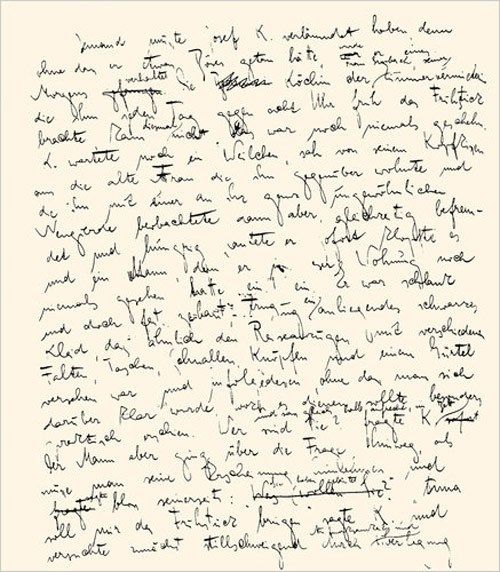 Jemand musste Josef K. verläumdet haben, denn
ohne dass er etwas Böses getan hätte, wurde er eines
Morgens gefangen verhaftet Die Köchin der Zimmervermieterin
Frau Grubach, seiner
die ihm jeden Tag gegen acht Uhr früh das Frühstück
brachte kam diesmal nicht. Das war noch niemals geschehn.
K. wartete noch ein Weilchen, sah von seinem Kopfkissen
aus die alte Frau die ihm gegenüber wohnte und
die ihn mit einer an ihr ganz ungewöhnlichen
Neugierde beobachtete dann aber, gleichzeitig befrem-
det und hungrig, läutete er. Sofort klopfte es
und ein Mann, den er in dieser Wohnung noch
niemals gesehen hatte trat ein. Er war schlank
und doch fest gebaut, er trug ein anliegendes schwarzes
Kleid, das ähnlich den Reiseanzügen mit verschiedenen
Falten, Taschen, Schnallen, Knöpfen und einem Gürtel
versehen war und infolgedessen, ohne dass man sich
darüber klar wurde, wozu es dienen sollte, besonders
und sass gleich halb aufrecht im Bett
praktisch erschien. "Wer sind Sie?" fragte K.
Der Mann aber ging über die Frage hinweg, als
müsse man seine Erscheinung hinnehmen und
sagte bloss seinerseits: "Was wollen Sie?" "Anna
Sie haben geläutet
soll mir das Frühstück bringen" sagte K. und
Aufmerksamkeit und
versuchte zunächst stillschweigend durch Überlegung